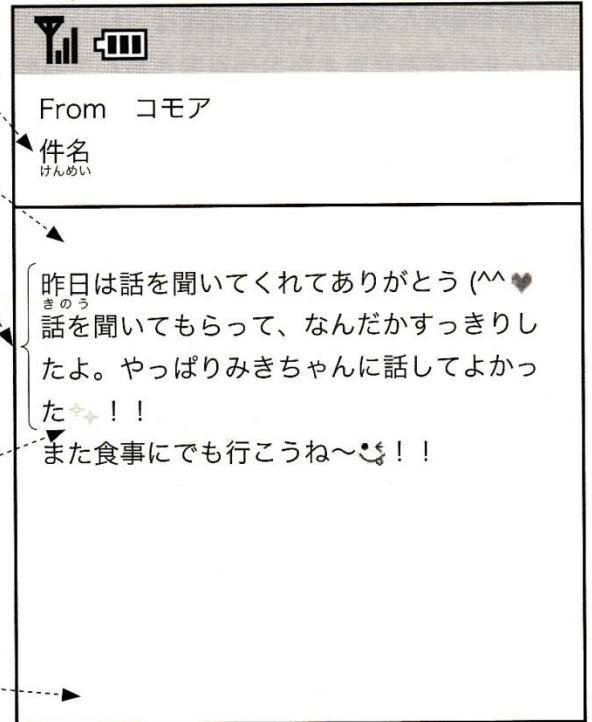 From コモア
件名
けんめい
昨日は話を聞いてくれてありがとう (^^♥
きのう
話を聞いてもらって、なんだかすっきりし
たよ。やっぱりみきちゃんに話してよかっ
た✨！！
また食事にでも行こうね～😜！！